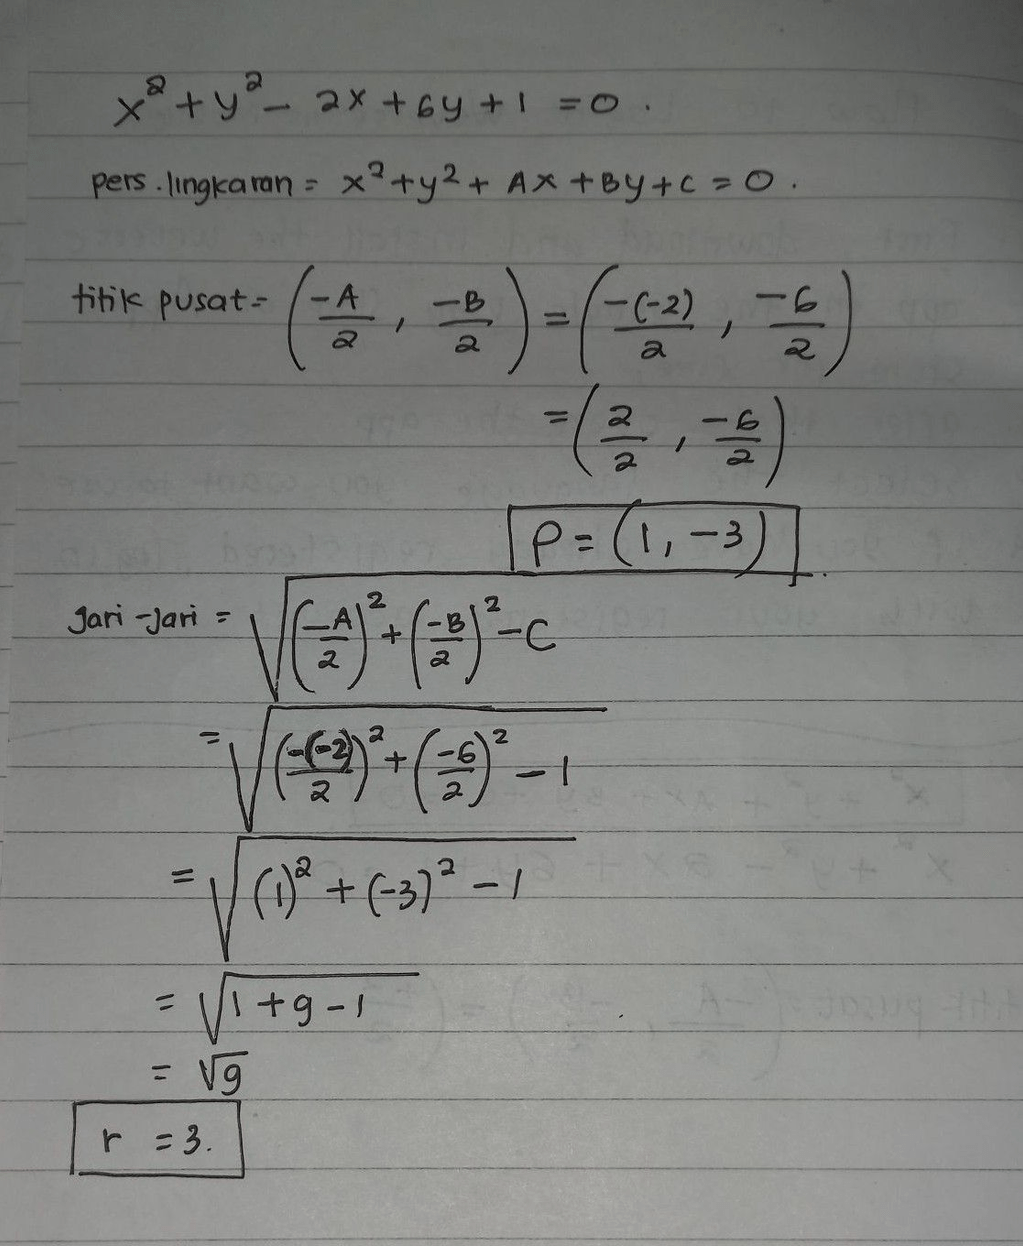 x² + y² - 2x + 6y + 1 = 0 .
pers . lingkaran = x² + y² + Ax + By + C = 0 .
titik pusat = (-A/2 , -B/2) = (-(-2)/2 , -6/2)
= (2/2 , -6/2)
P = (1, -3)
Jari - Jari = √((-A/2)² + (-B/2)² - C
= √((-(-2)/2)² + (-6/2)² - 1
= √(1)² + (-3)² - 1
= √1 + 9 - 1
= √9
r = 3.